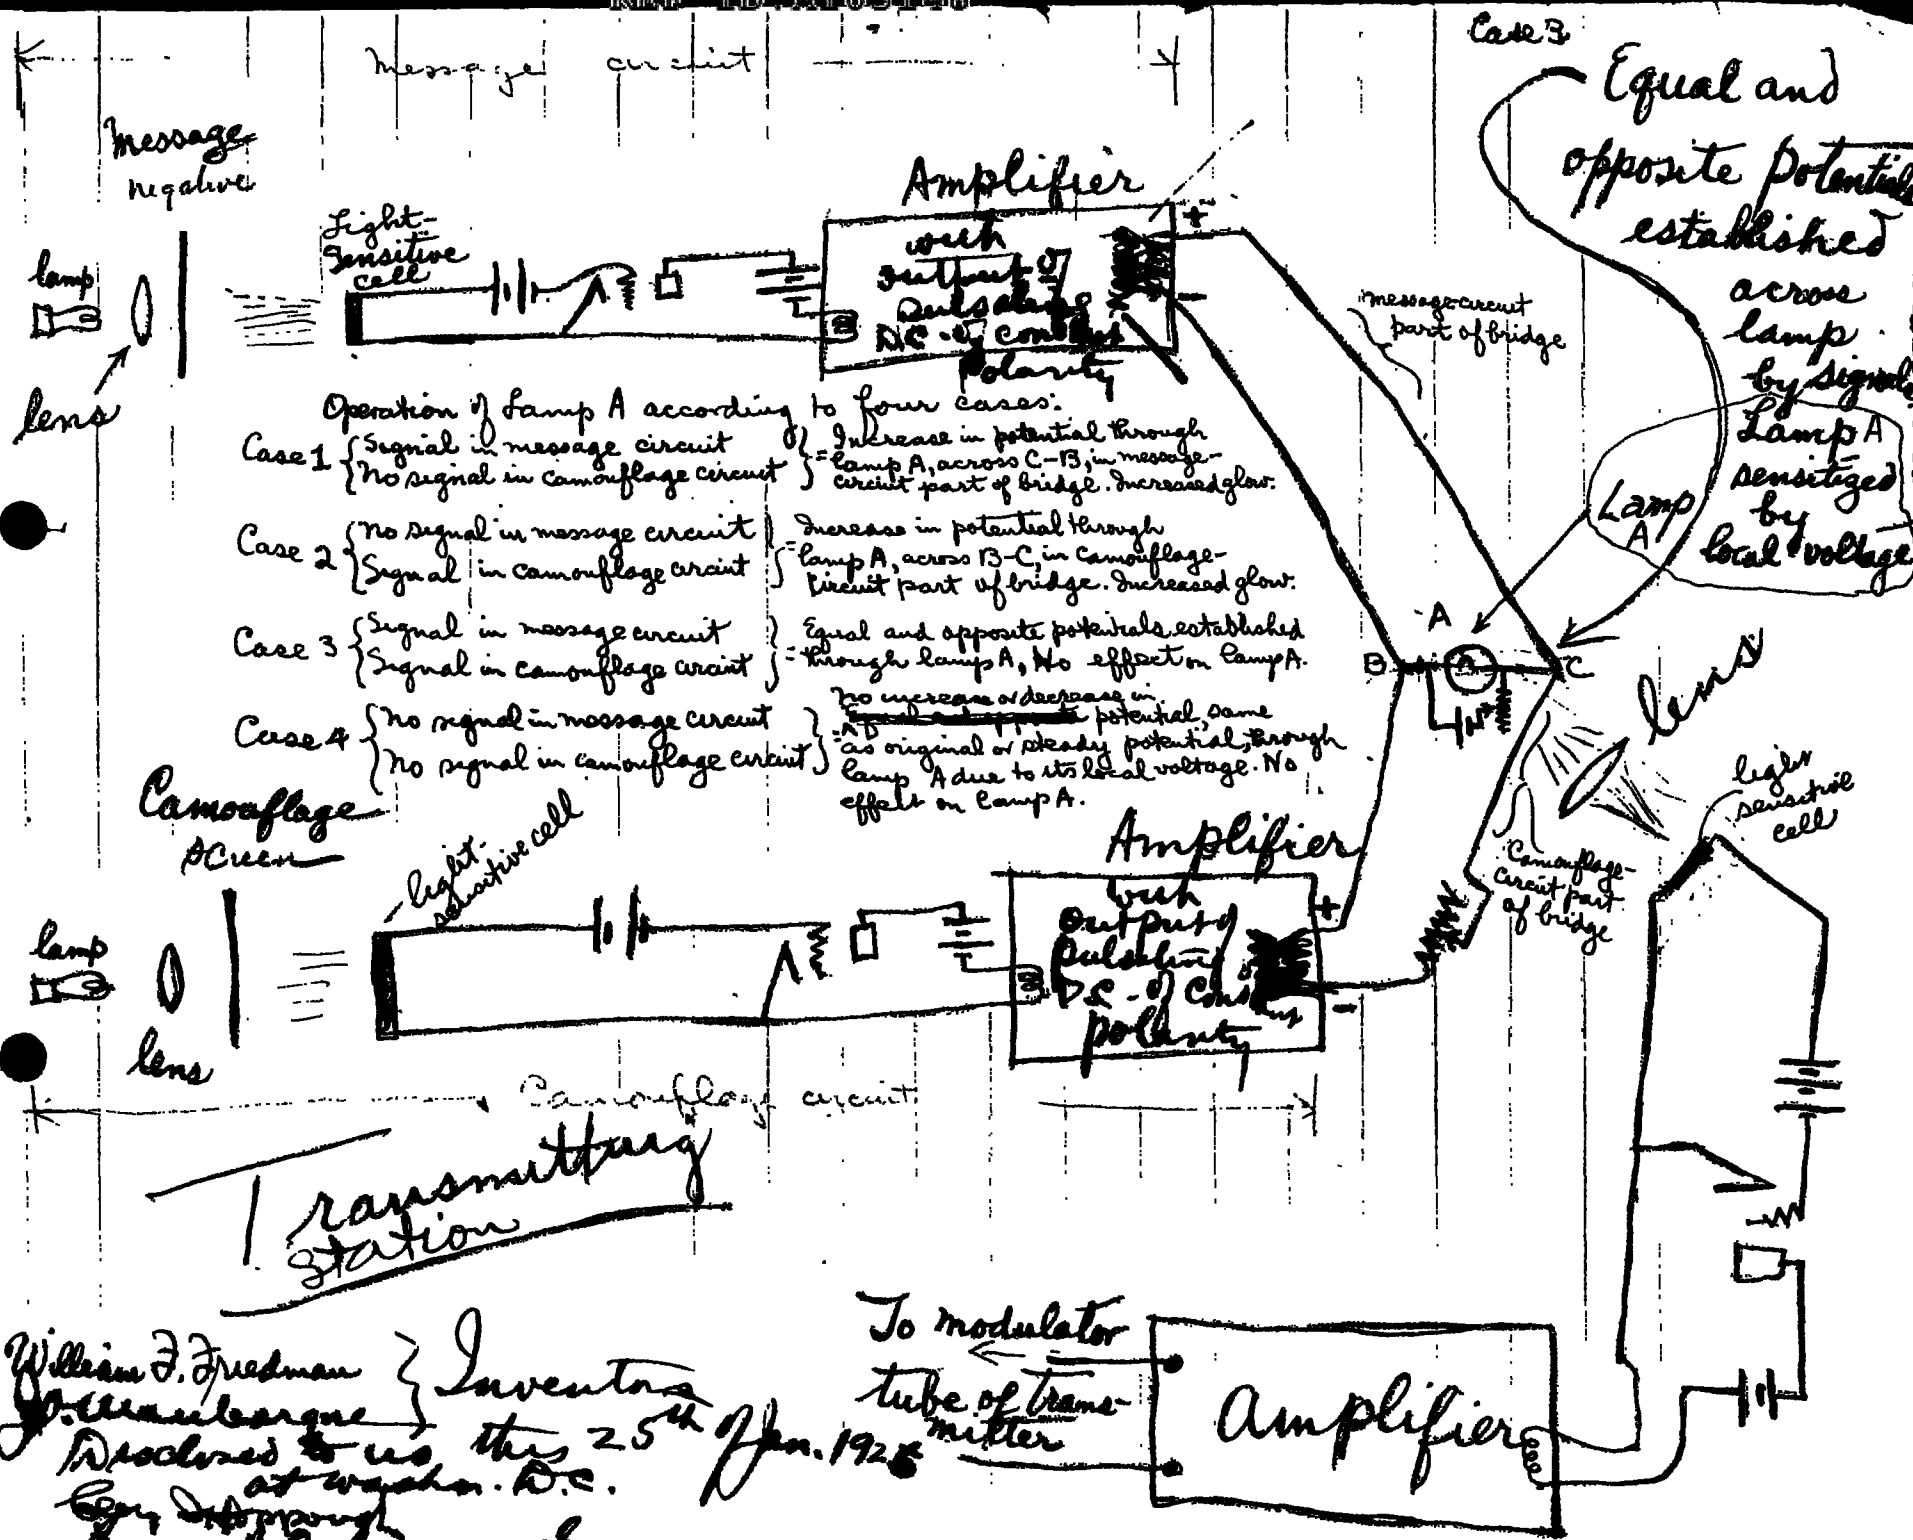 Message circuit
Case 3
Equal and
opposite Potentials
established
across
lamp
by signals
Lamp A
sensitized
by
local voltage
message
negative
Light-
Sensitive
cell
lamp
lens
Amplifier
with
output of
Pulsating
D.C. of constant
Polarity
+
-
message circuit
part of bridge
Operation of Lamp A according to four cases:
Case 1 { Signal in message circuit
No signal in camouflage circuit } = Increase in potential through
lamp A, across C-B, in message-
circuit part of bridge. Increased glow.
Case 2 { No signal in message circuit
Signal in camouflage circuit } = Increase in potential through
lamp A, across B-C, in camouflage-
circuit part of bridge. Increased glow.
Case 3 { Signal in message circuit
Signal in camouflage circuit } = Equal and opposite potentials established
through lamp A, No effect on lamp A.
Case 4 { No signal in message circuit
No signal in camouflage circuit } = No increase or decrease in
potential, same
as original or steady potential, through
lamp A due to its local voltage. No
effect on Lamp A.
Lamp
A
A
B
C
lens
light
sensitive
cell
Camouflage-
circuit part
of bridge
Camouflage
screen
light-
sensitive cell
lamp
lens
Amplifier
with
output of
Pulsating
D.C. of
polarity
+
-
Camouflage circuit
Transmitting
Station
To modulator
tube of trans-
mitter
Amplifier
William F. Friedman
Inventors
Disclosed to us this 25th of Jan. 192
at Washn. D.C.